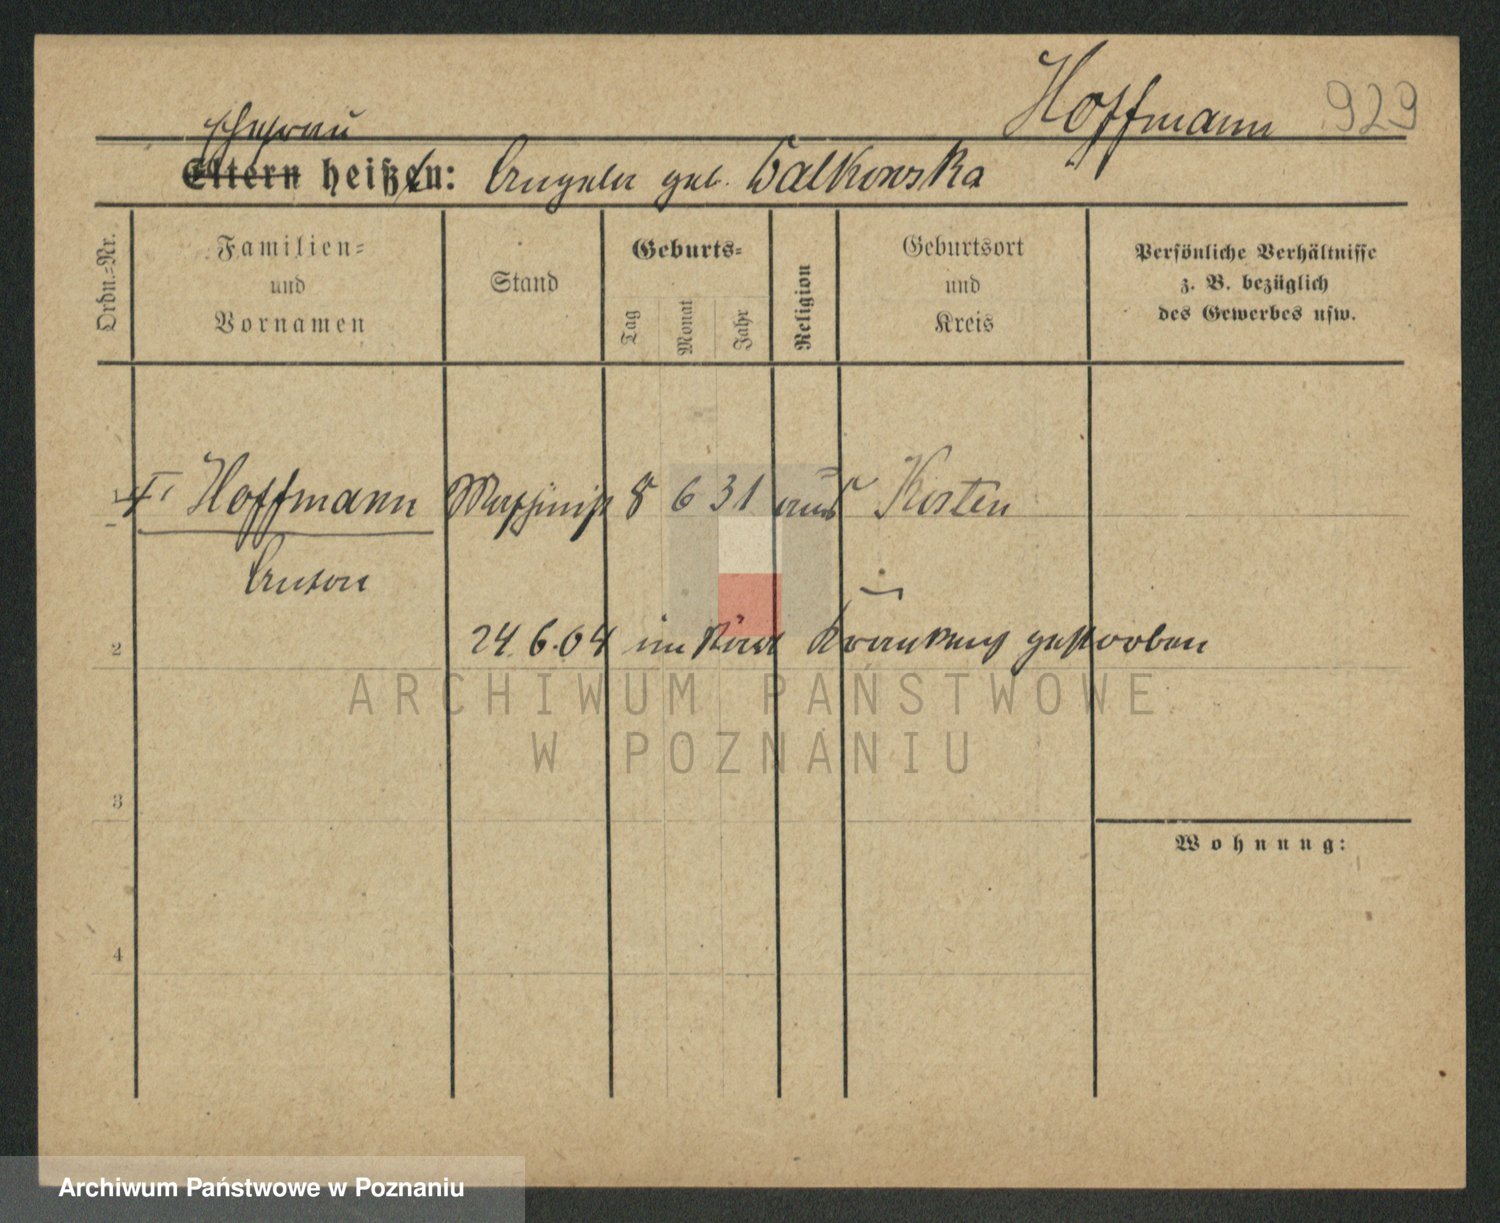 Hoffmann 929
Ehefrau
Eltern heißen: Angela geb. Walkowska
Ordn.-Nr.
Familien-
und
Vornamen
Stand
Geburts-
Tag
Monat
Jahr
Religion
Geburtsort
und
Kreis
Persönliche Verhältnisse
z. B. bezüglich
des Gewerbes usw.
1 Hoffmann Maschinist 8 6 31 aus Kosten
Anton
2 24.6.04 im Krankenhs gestorben
ARCHIWUM PAŃSTWOWE
W POZNANIU
3
Wohnung:
4
Archiwum Państwowe w Poznaniu